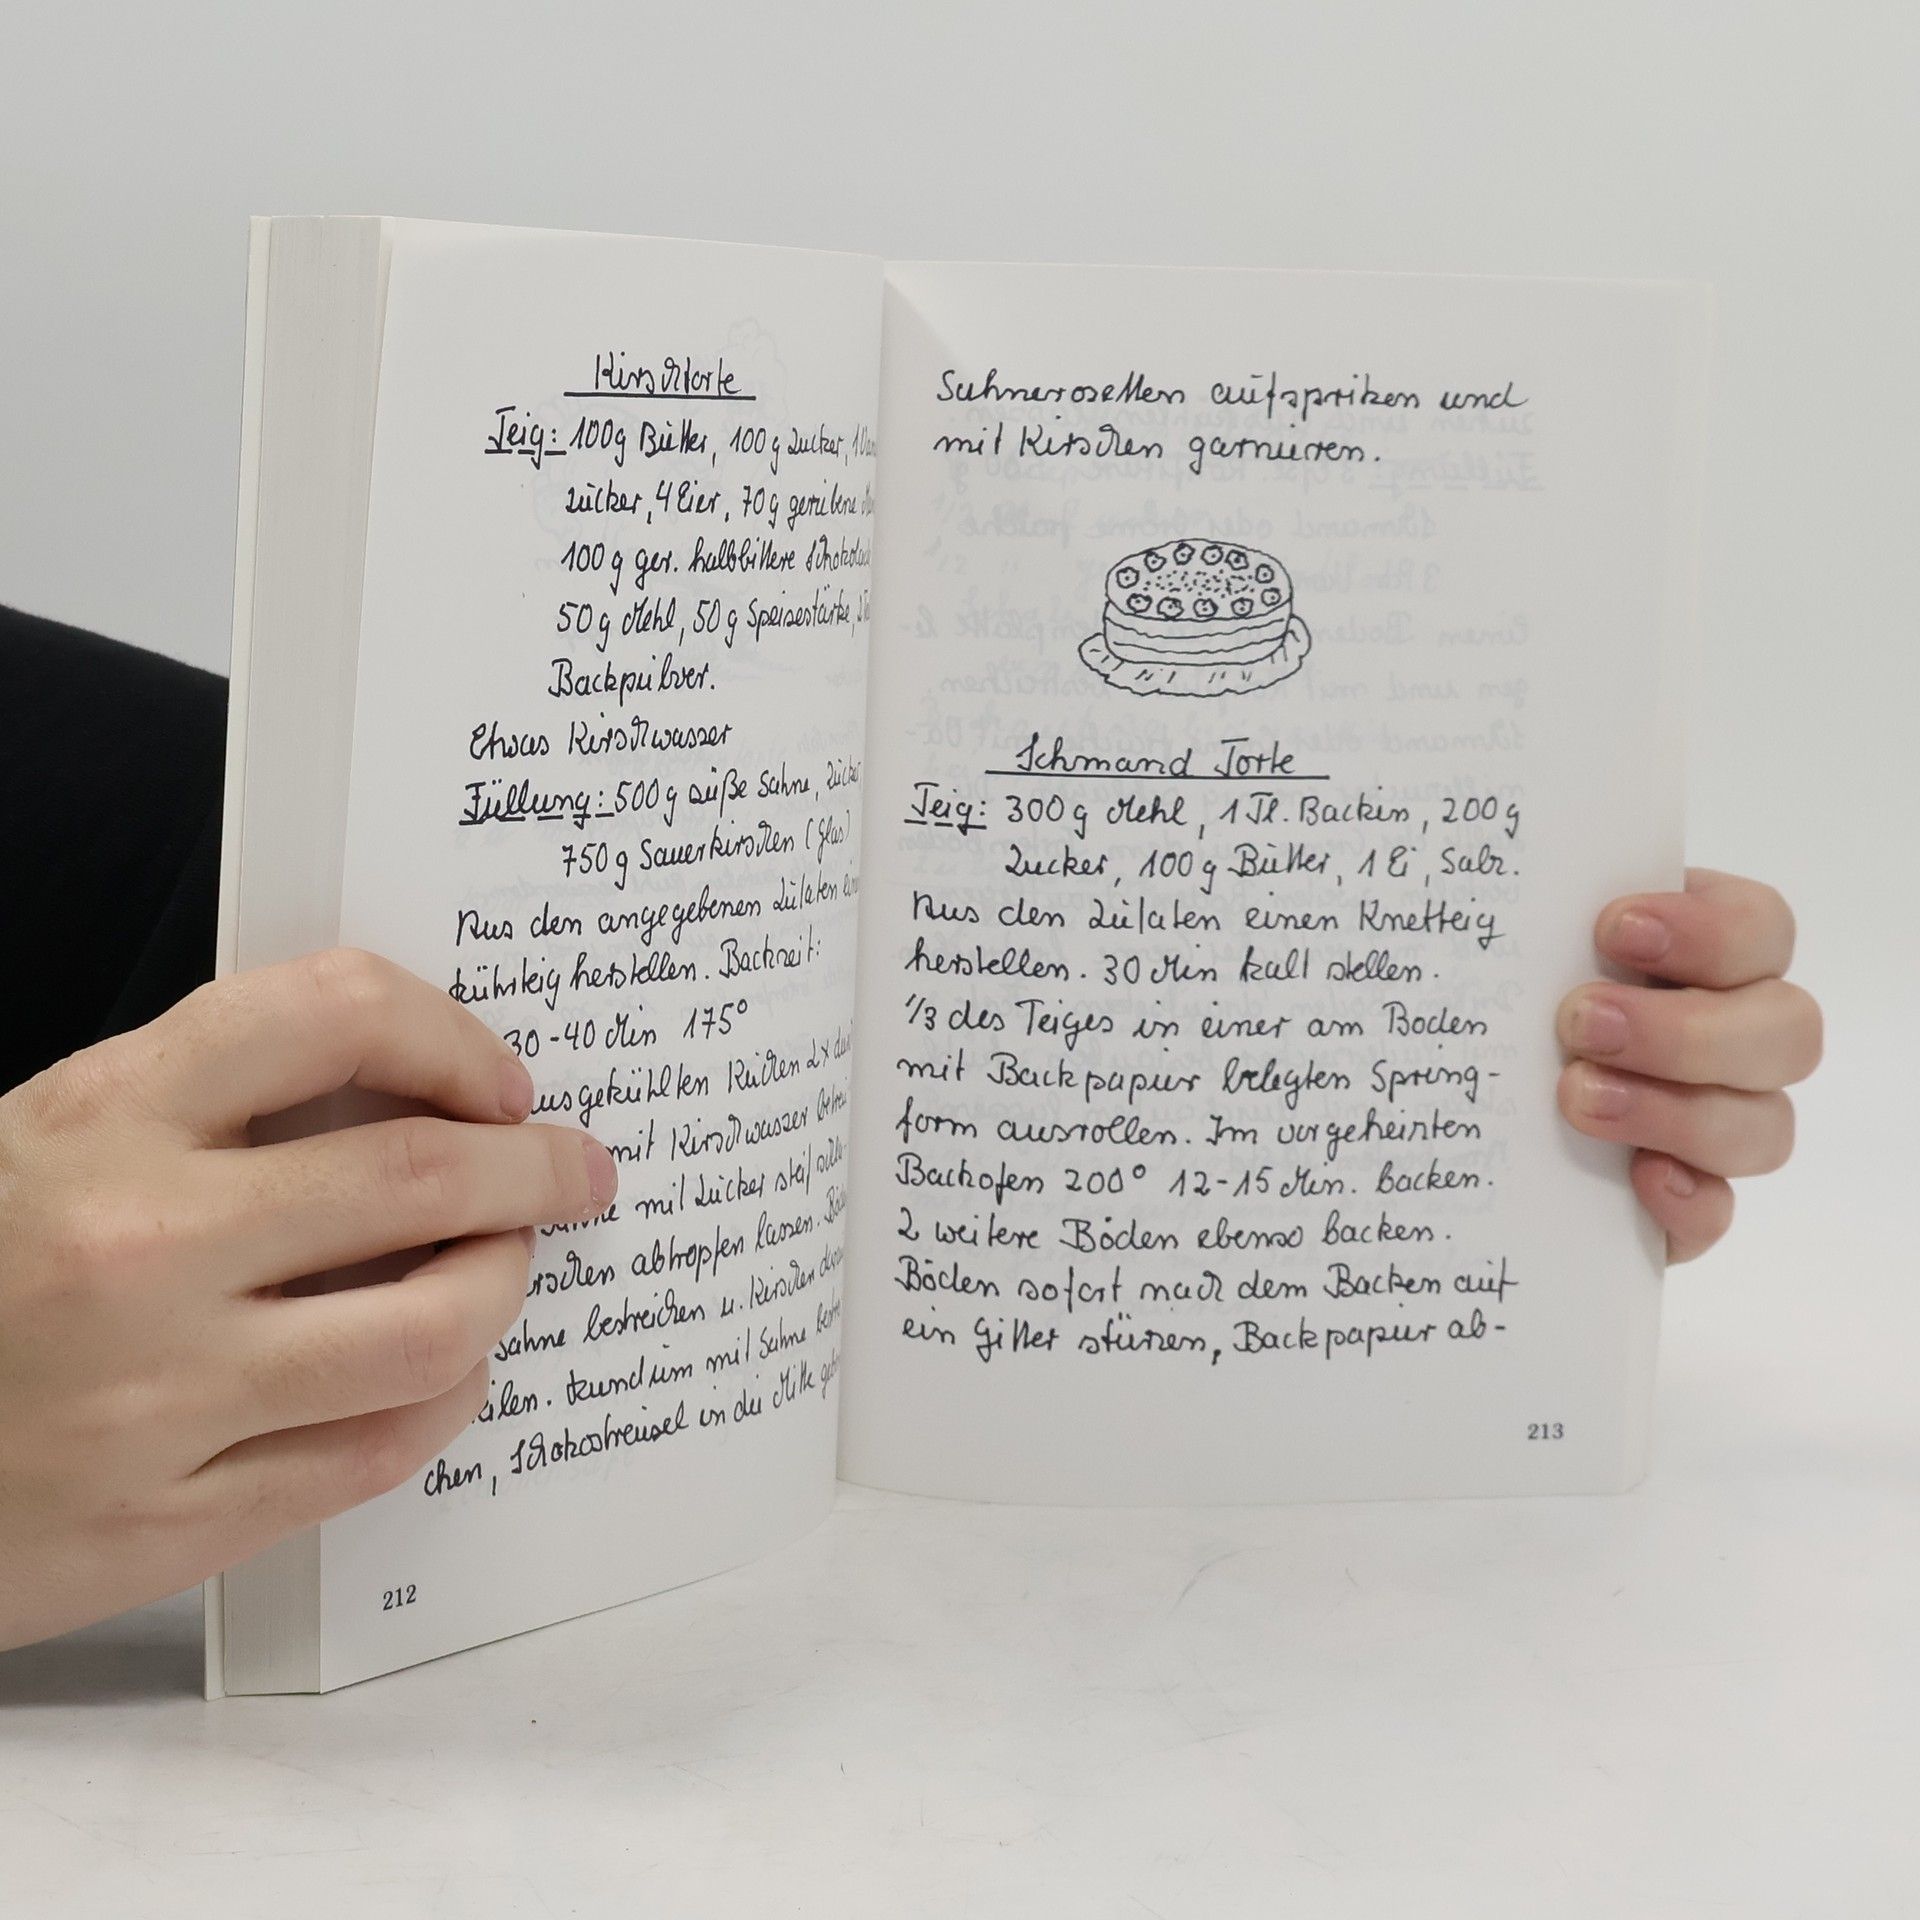 Kirschtorte
Teig: 100g Butter, 100g Zucker, 1
zucker, 4 Eier, 70g geriebene
100g ger. halbbittere
50g Mehl, 50g Speisestärke,
Backpulver.
Etwas Kirschwasser
Füllung: 500g süße Sahne,
750g Sauerkirschen (Glas)
Aus den angegebenen Zutaten
Rührteig herstellen. Backzeit:
30-40 Min 175°
ausgekühlten Kuchen 2x
mit Kirschwasser
mit Zucker steif
abtropfen lassen.
Sahne bestreichen u. Kirschen
Rundum mit Sahne
chen, Schokostreusel in die Mitte
212
Sahnerosetten aufspritzen und
mit Kirschen garnieren.
Schmand Torte
Teig: 300g Mehl, 1 Tl. Backin, 200g
Zucker, 100g Butter, 1 Ei, Salz.
Aus den Zutaten einen Knetteig
herstellen. 30 Min kalt stellen.
1/3 des Teiges in einer am Boden
mit Backpapier belegten Spring-
form ausrollen. Im vorgeheizten
Backofen 200° 12-15 Min. backen.
2 weitere Böden ebenso backen.
Böden sofort nach dem Backen auf
ein Gitter stürzen, Backpapier ab-
213